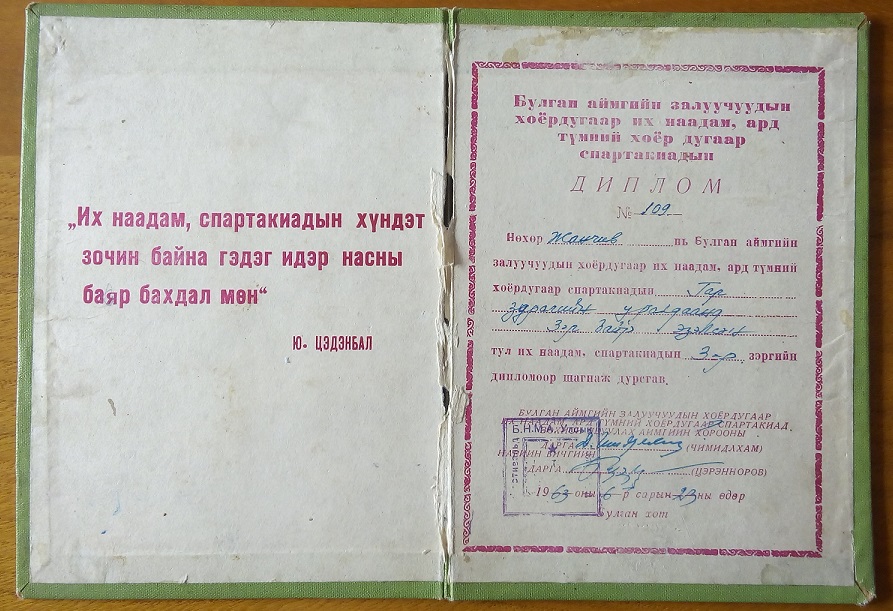 „Их наадам, спартакиадын хүндэт
зочин байна гэдэг идэр насны
баяр бахдал мөн“
Ю. ЦЭДЭНБАЛ
Булган аймгийн залуучуудын
хоёрдугаар их наадам, ард
түмний хоёр дугаар
спартакиадын
ДИПЛОМ
№ 109
Нөхөр Жанчив нь Булган аймгийн
залуучуудын хоёрдугаар их наадам, ард түмний
хоёрдугаар спартакиадын Гар
зурагийн уралдаанд
3эр байр эзэлсэн
тул их наадам, спартакиадын 3-р зэргийн
дипломоор шагнаж дурсгав.
БУЛГАН АЙМГИЙН ЗАЛУУЧУУДЫН ХОЁРДУГААР
ИХ НААДАМ, АРД ТҮМНИЙ ХОЁРДУГААР СПАРТАКИАД
АЙМГИЙН ХОРООНЫ
ДАРГА (ЧИМИДДАХАМ)
НАРИЙН БИЧГИЙН
ДАРГА (ЦЭРЭННОРОВ)
Б.Н.М.А. Улсын
1963 оны 6-р сарын 23ны өдөр
Булган хот